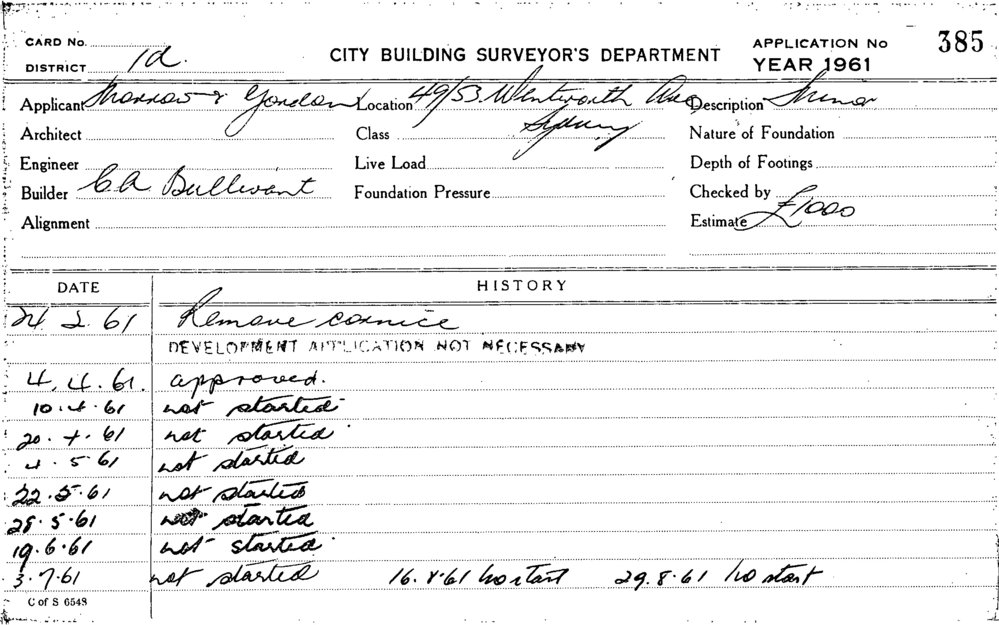 CARD No.
DISTRICT 1d.
CITY BUILDING SURVEYOR'S DEPARTMENT
APPLICATION No 385
YEAR 1961
Applicant & Gordon Location 49/53 Wentworth Ave Sydney Description Minor
Architect Class Nature of Foundation
Engineer Live Load Depth of Footings
Builder C A Bullivant Foundation Pressure Checked by
Alignment Estimate £1000
DATE HISTORY
24 2 61 Remove cornice
DEVELOPMENT APPLICATION NOT NECESSARY
4.4.61. approved.
10.4.61 not started
20.4.61 not started
4.5.61 not started
22.5.61 not started
28.5.61 not started
19.6.61 not started
3.7.61 not started 16.8.61 no start 29.8.61 no start
C of S 6548